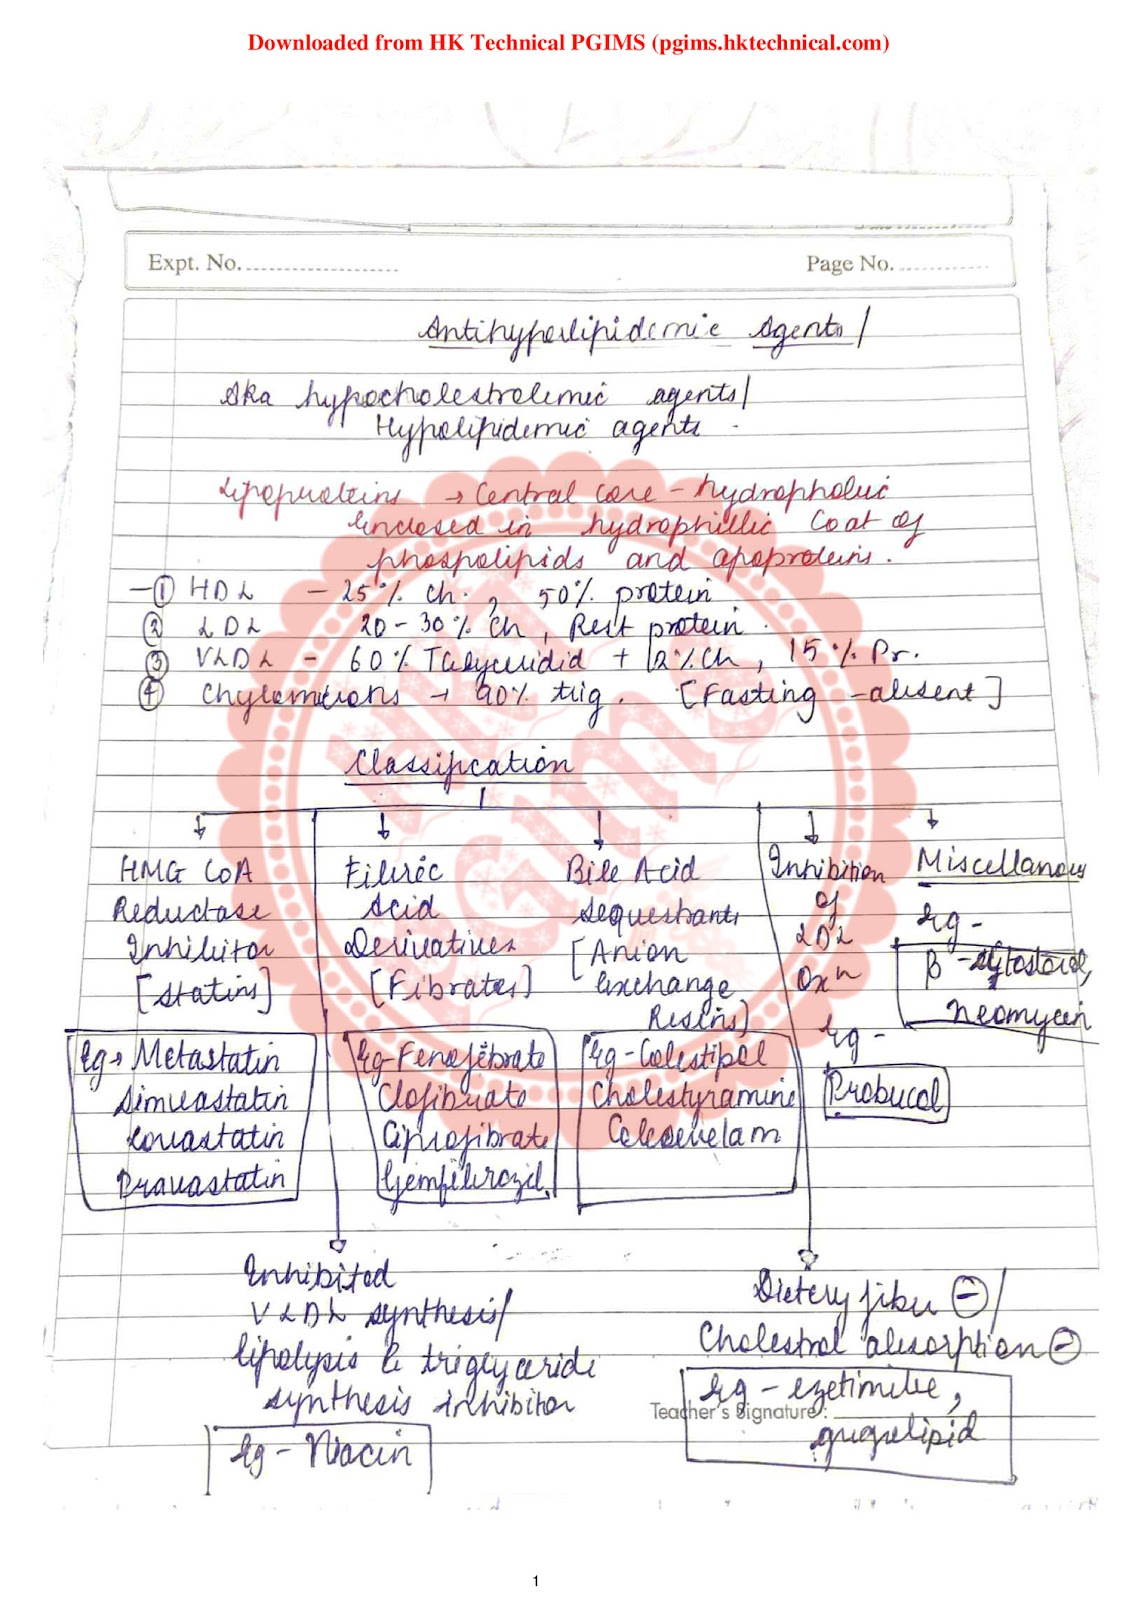 Downloaded from HK Technical PGIMS (pgims.hktechnical.com)
Expt. No.
Page No.
Antihyperlipidemic Agents/
Aka hypocholestrolemic agents/
Hypolipidemic agents
Lipoproteins → Central core - hydrophobic
enclosed in hydrophillic Coat of
phospolipids and apoproteins.
① HDL - 25% ch., 50% protein
② LDL 20-30% ch, Rest protein.
③ VLDL - 60% + 12% Ch, 15% Pr.
④ Chylomicrons → 90% trig. [Fasting - absent]
Classification
HMG CoA
Reductase
Inhibitor
[Statins]
Eg → Metastatin
Simvastatin
Lovastatin
Pravastatin
Fibric
Acid
Derivatives
[Fibrates]
Eg - Fenofibrate
Clofibrate
Ciprofibrate
Gemfibrozil
Bile Acid
Sequestrants
[Anion
Exchange
Resins]
Eg - Colestipol
Cholestyramine
Colesevelam
Inhibition
of
LDL
Oxn
Eg -
Probucol
Miscellanous
Eg -
β-sytosterol,
Neomycin
Inhibited
VLDL synthesis/
lipolysis & triglyceride
synthesis inhibitor
Eg - Niacin
Dietery fibre ⊖/
Cholestrol absorption ⊖
Eg - ezetimibe,
gugulipid
Teacher's Signature :
HK
PGIMS
1